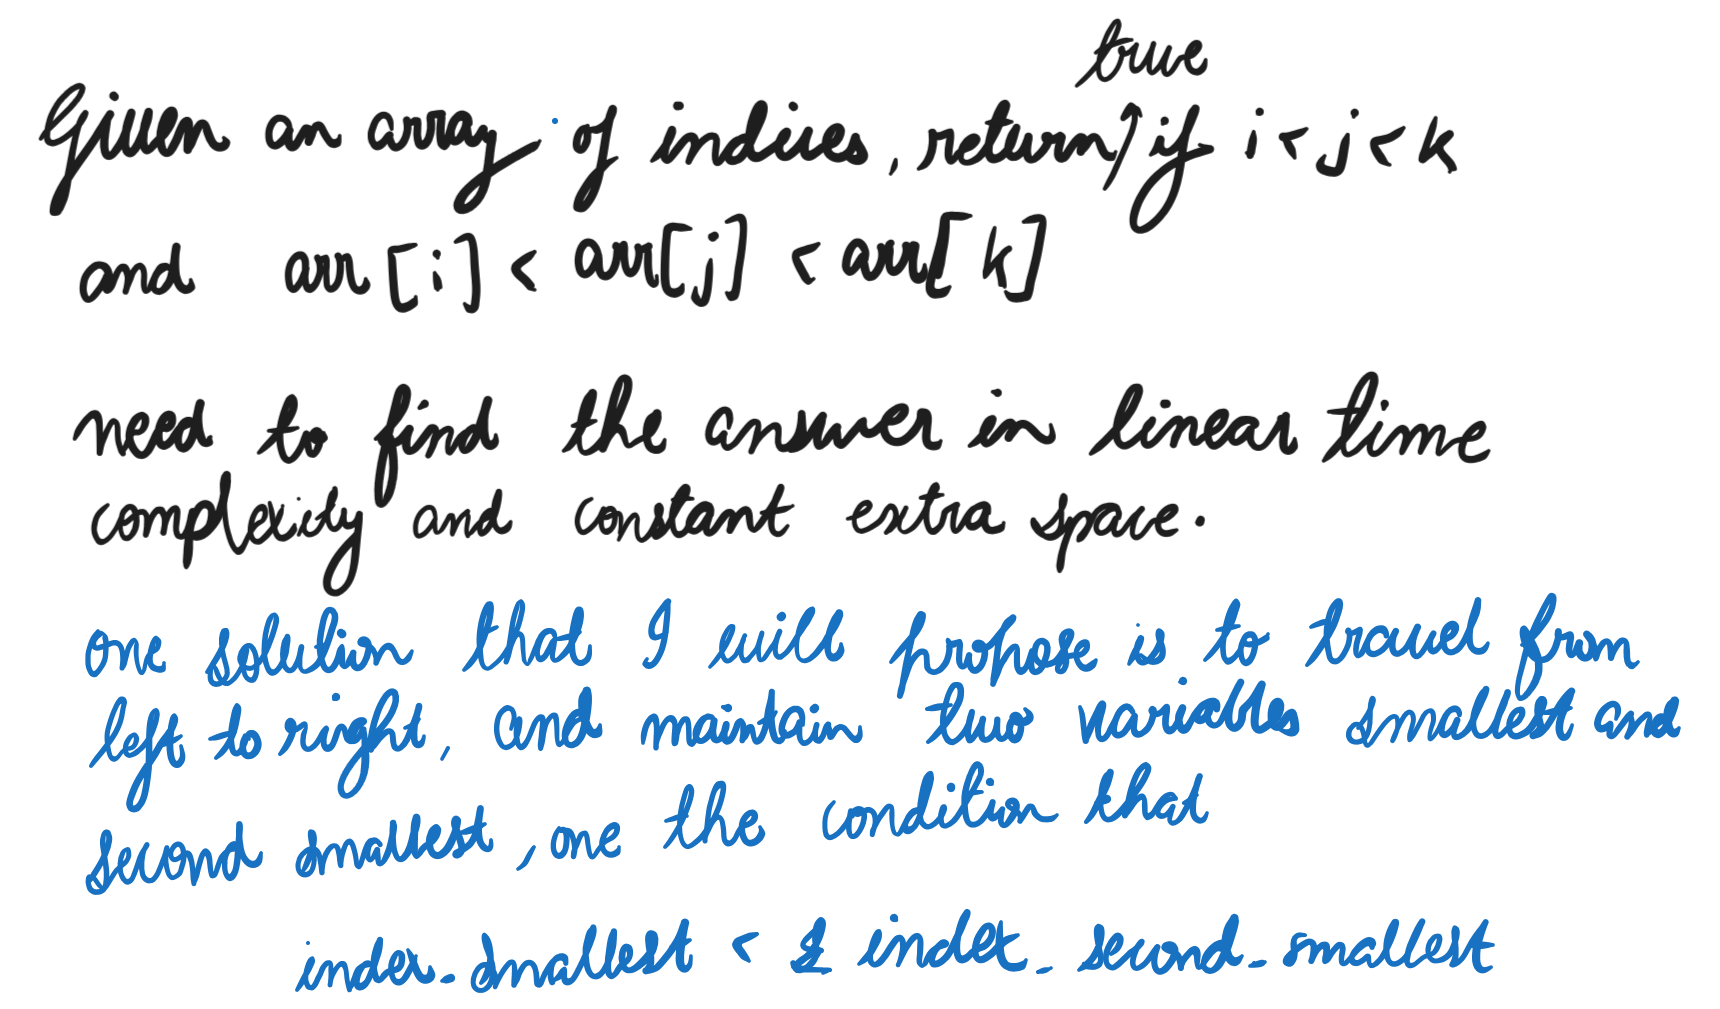 true
Given an array of indices, return if i < j < k
and arr[i] < arr[j] < arr[k]
need to find the answer in linear time
complexity and constant extra space.
one solution that I will propose is to travel from
left to right, and maintain two variables smallest and
second smallest, one the condition that
index_smallest < index_second_smallest